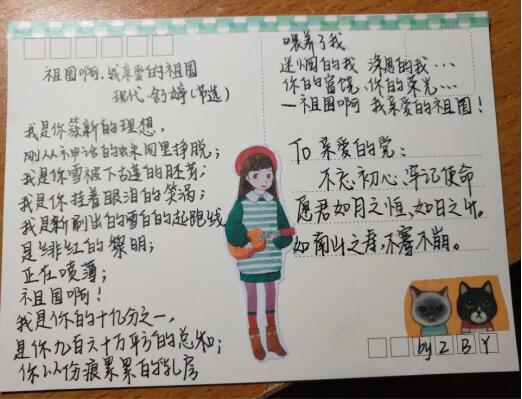 祖国啊,我亲爱的祖国
现代 舒婷(节选)
我是你簇新的理想,
刚从神话的蛛网里挣脱;
我是你雪被下古莲的胚芽;
我是你挂着眼泪的笑涡;
我是新刷出的雪白的起跑线
是绯红的黎明;
正在喷薄;
祖国啊!
我是你的十亿分之一,
是你九百六十万平方的总和;
你以伤痕累累的乳房
喂养了我
迷惘的我 深思的我…
你的富饶、你的荣光…
—祖国啊 我亲爱的祖国!
To 亲爱的党:
不忘初心、牢记使命
愿君如月之恒、如日之升。
如南山之寿,不骞不崩。
by Z B Y